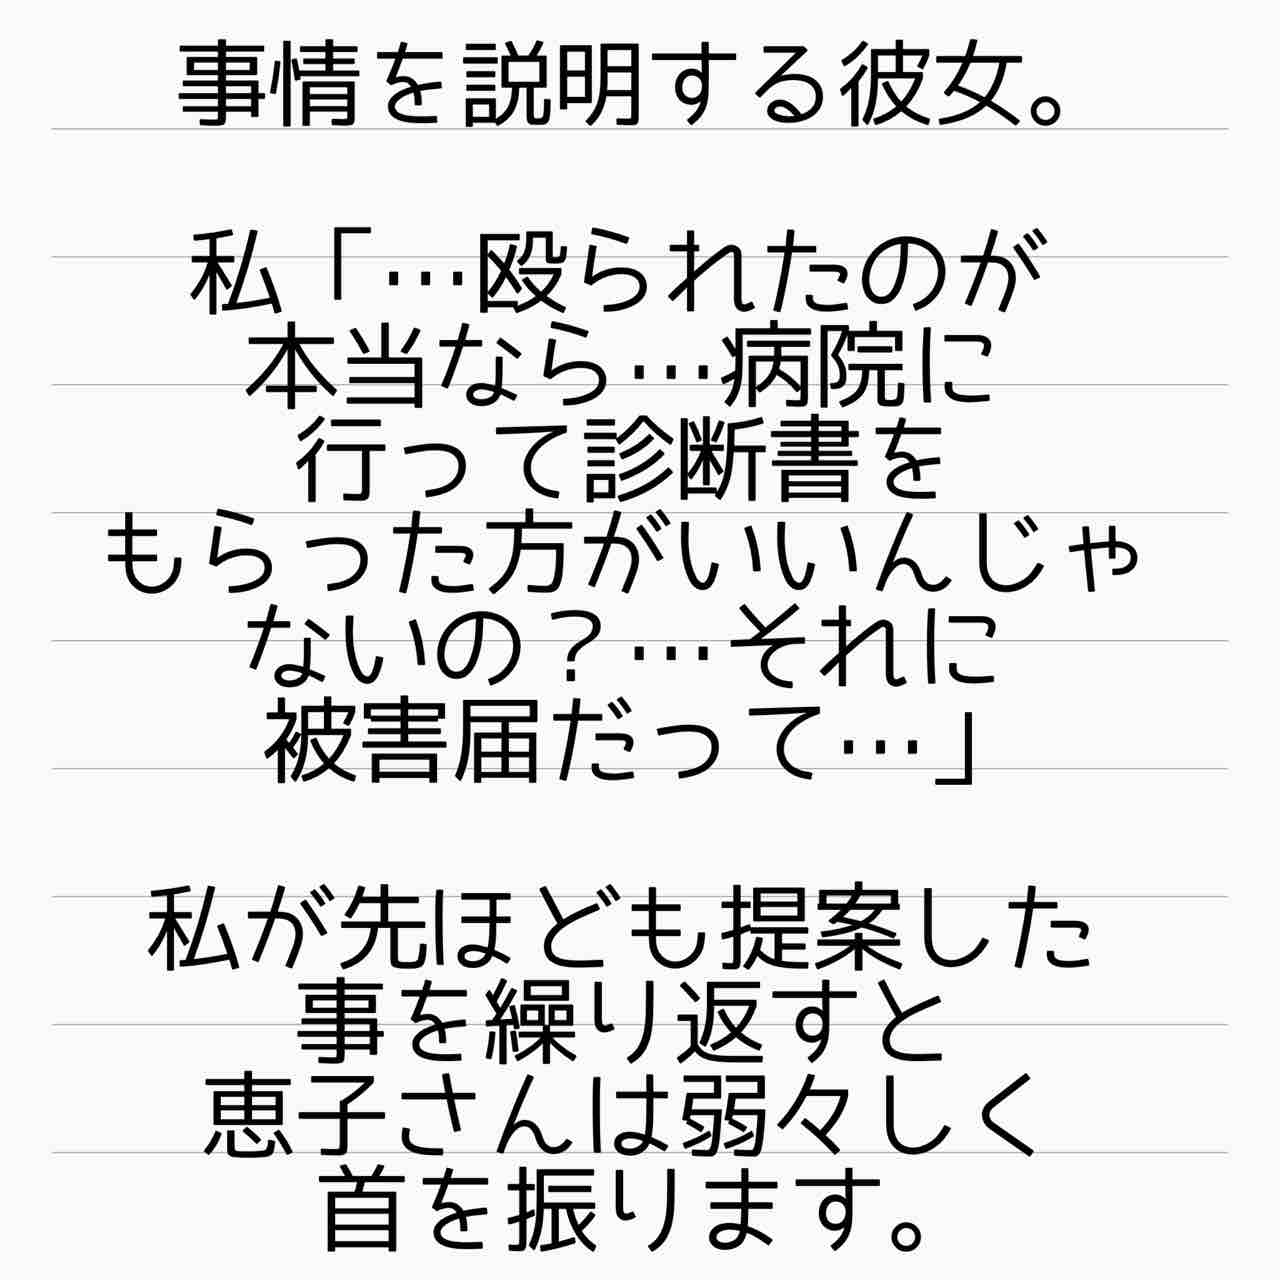 事情を説明する彼女。
私「…殴られたのが
本当なら…病院に
行って診断書を
もらった方がいいんじゃ
ないの？…それに
被害届だって…」
私が先ほども提案した
事を繰り返すと
恵子さんは弱々しく
首を振ります。